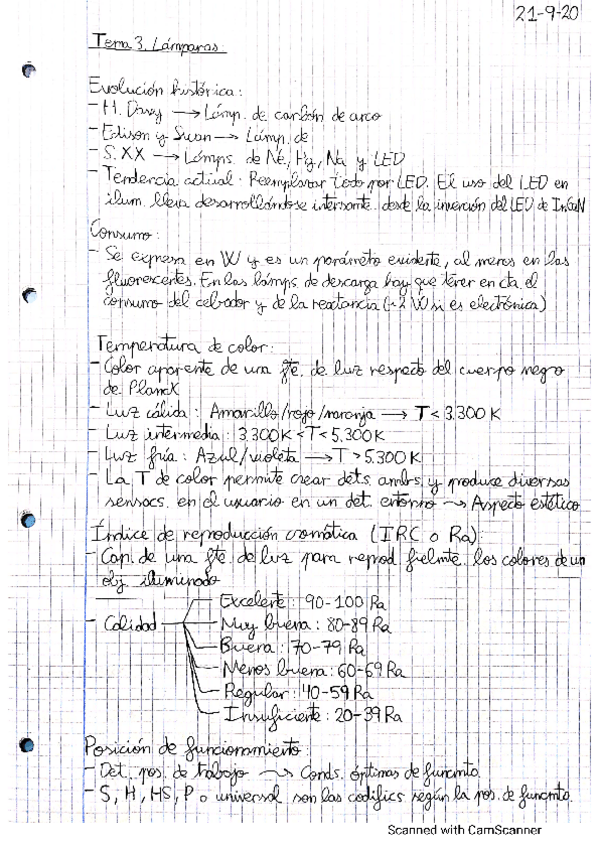 21-9-20
Tema 3. Lámparas
Evolución histórica:
- H. Davy → Lámp. de carbón de arco
- Edison y Swan → Lámp. de
- S. XX → Lámps. de Ne, Hg, Na y LED
- Tendencia actual: Reemplazar todo por LED. El uso del LED en
ilum. lleva desarrollándose desde la invención del LED de InGaN
Consumo:
- Se expresa en W y es un parámetro evidente, al menos en las
fluorescentes. En las lámps. de descarga hay que tener en cta. el
consumo del cebador y de la reactancia (~2 W si es electrónica)
Temperatura de color:
- Color aparente de una fte. de luz respecto del cuerpo negro
de Planck
- Luz cálida: Amarillo/rojo/naranja → T < 3.300 K
- Luz intermedia: 3.300 K < T < 5.300 K
- Luz fría: Azul/violeta → T > 5.300 K
- La T de color permite crear dets. ambs. y produce diversas
sensacs. en el usuario en un det. entorno → Aspecto estético
Índice de reproducción cromática (IRC o Ra):
- Cap. de una fte. de luz para reprod. fielmte. los colores de un
obj. iluminado
- Calidad
Excelente: 90-100 Ra
Muy buena: 80-89 Ra
Buena: 70-79 Ra
Menos buena: 60-69 Ra
Regular: 40-59 Ra
Insuficiente: 20-39 Ra
Posición de funcionamiento:
- Det. pos. de trabajo → Conds. óptimas de funcmto.
- S, H, HS, P o universal son las codifics. según la pos. de funcmto.
Scanned with CamScanner